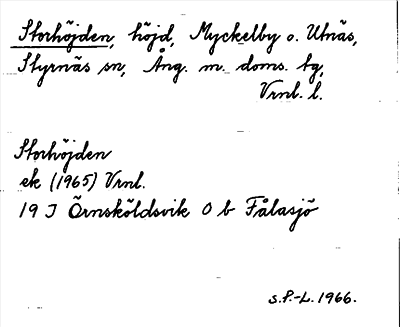 Storhöjden, höjd, Myckelby o. Utnäs,
Styrnäs sn, Ång. m. doms. tg,
Vrnl. l.
Storhöjden
ek (1965) Vrnl.
19 J Örnsköldsvik O b Fålasjö
S.P.-L. 1966.